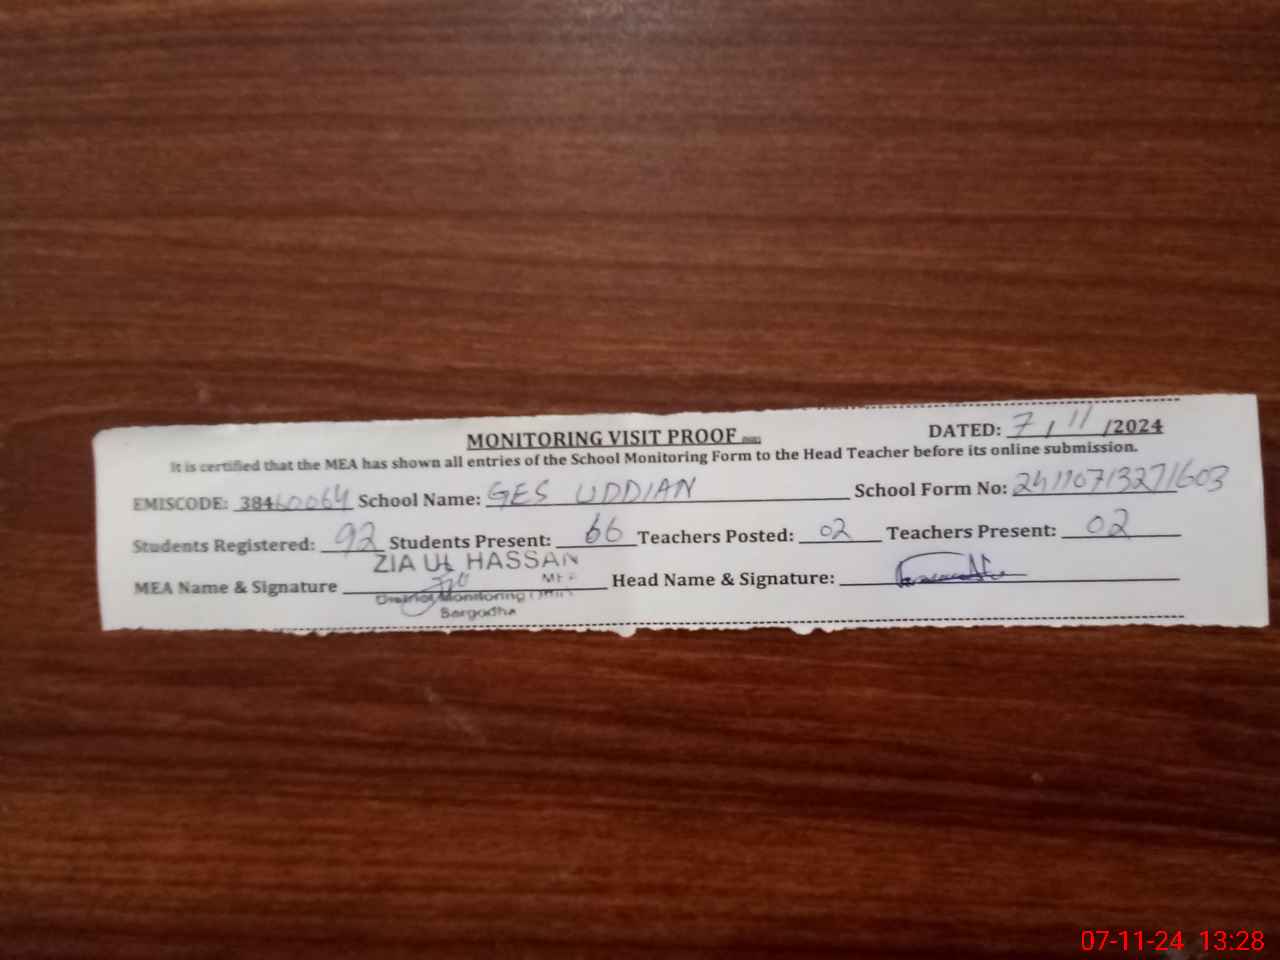 MONITORING VISIT PROOF
DATED: 7/11/2024
It is certified that the MEA has shown all entries of the School Monitoring Form to the Head Teacher before its online submission.
EMISCODE: 38460064 School Name: GES UDDIAN School Form No: 24110713271603
Students Registered: 92 Students Present: 66 Teachers Posted: 02 Teachers Present: 02
ZIA UL HASSAN
MEA Name & Signature Head Name & Signature:
District Monitoring
Sargodha
07-11-24 13:28